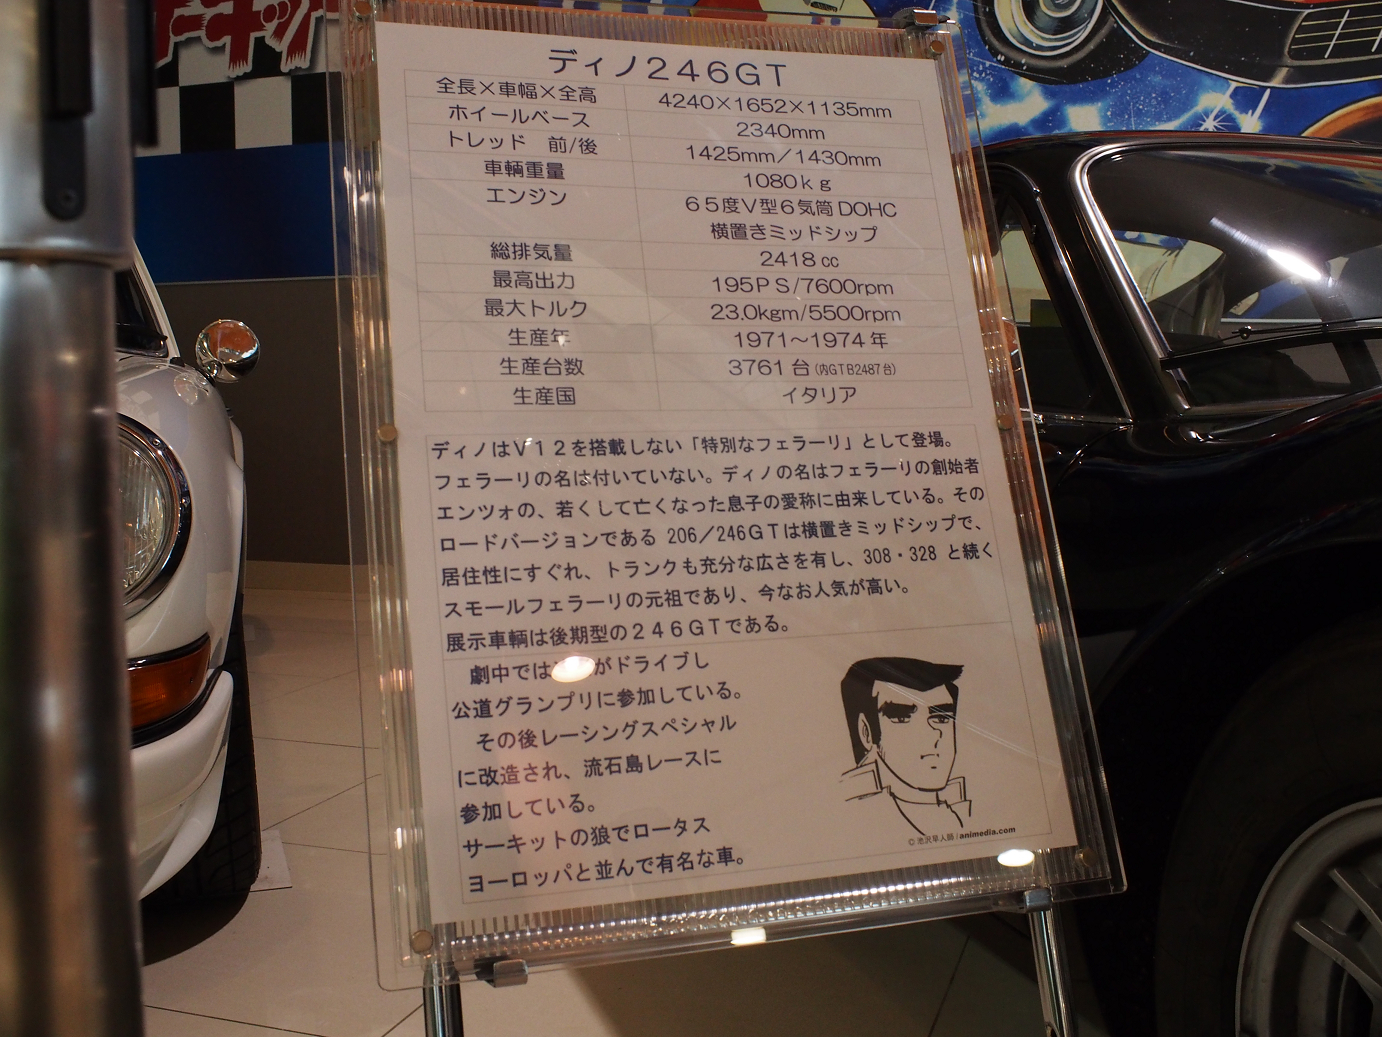 ディノ246GT
全長×車幅×全高 4240×1652×1135mm
ホイールベース 2340mm
トレッド 前/後 1425mm/1430mm
車輌重量 1080kg
エンジン 65度V型6気筒DOHC
横置きミッドシップ
総排気量 2418cc
最高出力 195PS/7600rpm
最大トルク 23.0kgm/5500rpm
生産年 1971～1974年
生産台数 3761台(内GTB2487台)
生産国 イタリア
ディノはV12を搭載しない「特別なフェラーリ」として登場。
フェラーリの名は付いていない。ディノの名はフェラーリの創始者
エンツォの、若くして亡くなった息子の愛称に由来している。その
ロードバージョンである 206/246GTは横置きミッドシップで、
居住性にすぐれ、トランクも充分な広さを有し、308・328 と続く
スモールフェラーリの元祖であり、今なお人気が高い。
展示車輌は後期型の246GTである。
劇中では がドライブし
公道グランプリに参加している。
その後レーシングスペシャル
に改造され、流石島レースに
参加している。
サーキットの狼でロータス
ヨーロッパと並んで有名な車。
© 池沢早人師/animedia.com